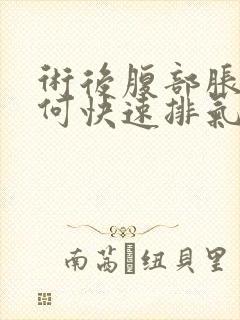 術後腹部脹
何快速排氣
南茜紐貝里